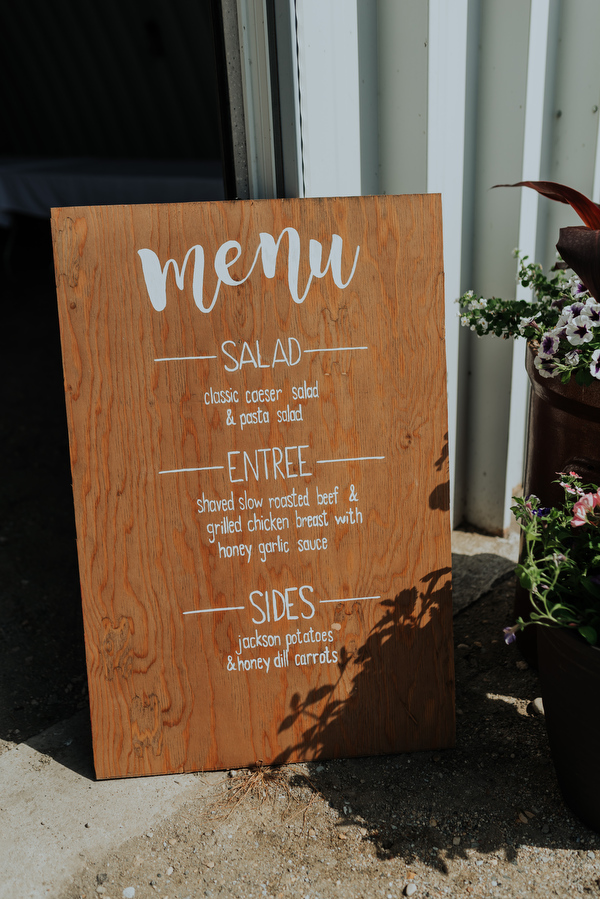 menu
SALAD
classic caeser salad
& pasta salad
ENTREE
shaved slow roasted beef &
grilled chicken breast with
honey garlic sauce
SIDES
jackson potatoes
& honey dill carrots